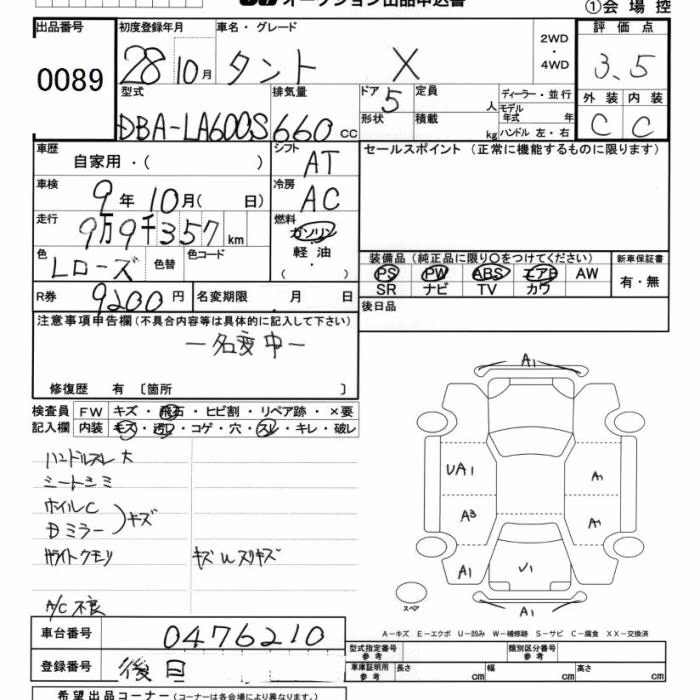 オークション出品申込書
①会場控
出品番号 初度登録年月 車名・グレード 評価点
0089 28 10月 タント X 2WD・4WD 3.5
型式 排気量 ドア 定員 ディーラー・並行 外装 内装
DBA-LA600S 660cc 5 人 モデル年式 年 C C
形状 積載 kg ハンドル 左・右
車歴 自家用・( ) シフト AT セールスポイント(正常に機能するものに限ります)
車検 9年10月( 日) 冷房 AC
走行 9万9千357km 燃料 ガソリン
軽油
( ・ )
色 Lローズ 色替 色コード 装備品(純正品に限り○をつけてください) 新車保証書
PS PW ABS エアB AW 有・無
SR ナビ TV カワ
R券 9200円 名変期限 月 日 後日品
注意事項申告欄(不具合内容等は具体的に記入して下さい)
ー名変中ー
修復歴 有 〔箇所 〕
検査員 FW キズ・飛石・ヒビ割・リペア跡・×要
記入欄 内装 キズ・汚レ・コゲ・穴・スレ・キレ・破レ
ハンドルスレ大
シートシミ
ホイルC
Dミラー )キズ
ライトクモリ キズUスリキズ
A/C不良
A1
UA1 A1
A3 A1
A1 U1
スペア A1
A−キズ E−エクボ U−凹み W−補修跡 S−サビ C−腐食 XX−交換済
車台番号 0476210 型式指定番号 参考 類別区分番号 参考
登録番号 後日 車庫証明用 参考 長さ cm 幅 cm 高さ cm
希望出品コーナー(コーナーは各会場により異なります。)